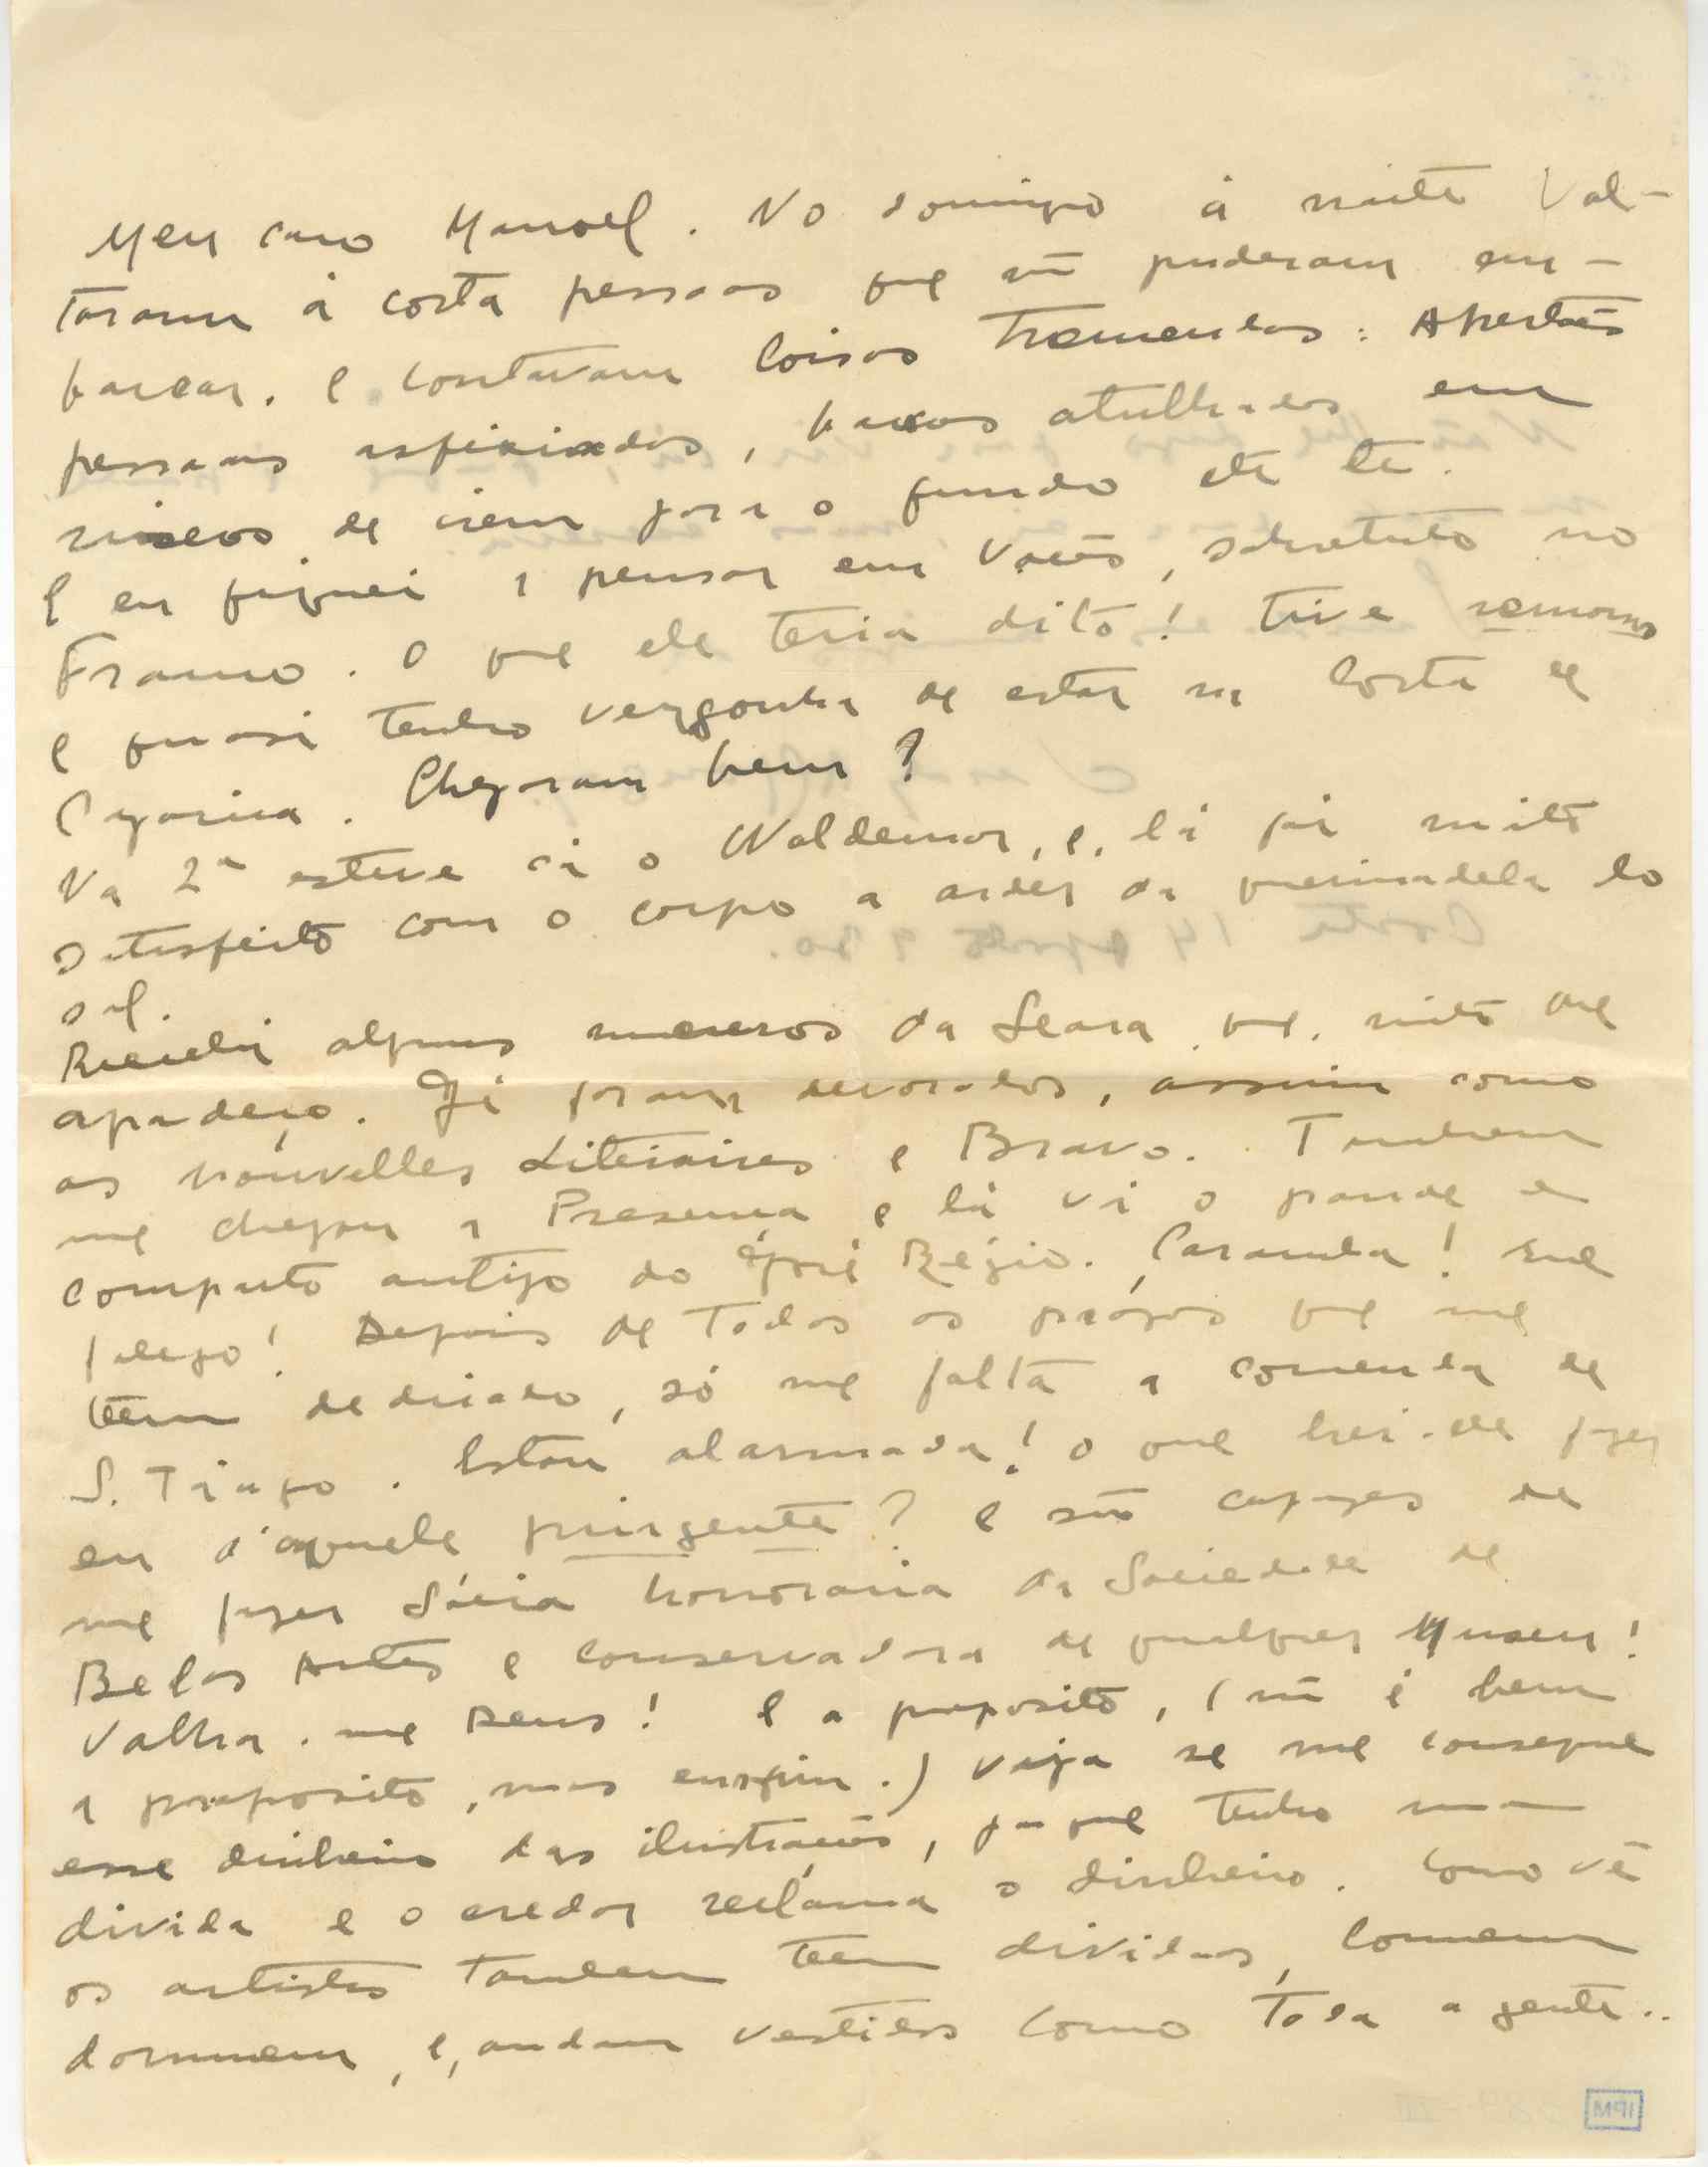 Meu caro Manoel. No domingo á noite Vol-
taram á costa pessoas que ñ puderam em-
barcar. e contavam coisas tremendas: Apertões
pessoas asfixiadas, barcos atulhados em
riscos de irem para o fundo etc etc.
E eu fiquei a pensar em Vocês, sobretudo no
Franco. O que ele teria dito! Tive remorsos
e quasi tenho vergonha de estar na Costa de
Caparica. Chegaram bem?
Na 2ª esteve cá o Waldemar, e, lá foi muito
satisfeito com o corpo a arder da queimadela do
sol.
Recebi alguns numeros da Seara que, muito lhe
agradeço. Já foram devorados, assim como
as Nouvelles Litéraires e Bravo. Tambem
me chegou a Presença e lá vi o grande e
comprido artigo do José Régio. Caramba! que
folego! Depois de todos os prosas que me
têem dedicado, só me falta a comenda de
S. Tiago. Estou alarmada! O que hei-de fazer
eu d'aquele pingente? E são capazes de
me fazer Sócia honoraria da Sociedade de
Belas Artes e conservadora de qualquer Museu!
Valha-me Deus! E a proposito, (ñ é bem
a proposito, mas emfim.) Veja se me consegue
esse dinheiro das ilustrações, já que tenho uma
divida e o credor reclama o dinheiro. Como vê
os artistas tambem teem dividas, comem
dormem, e, andam vestidos como toda a gente..
IPM